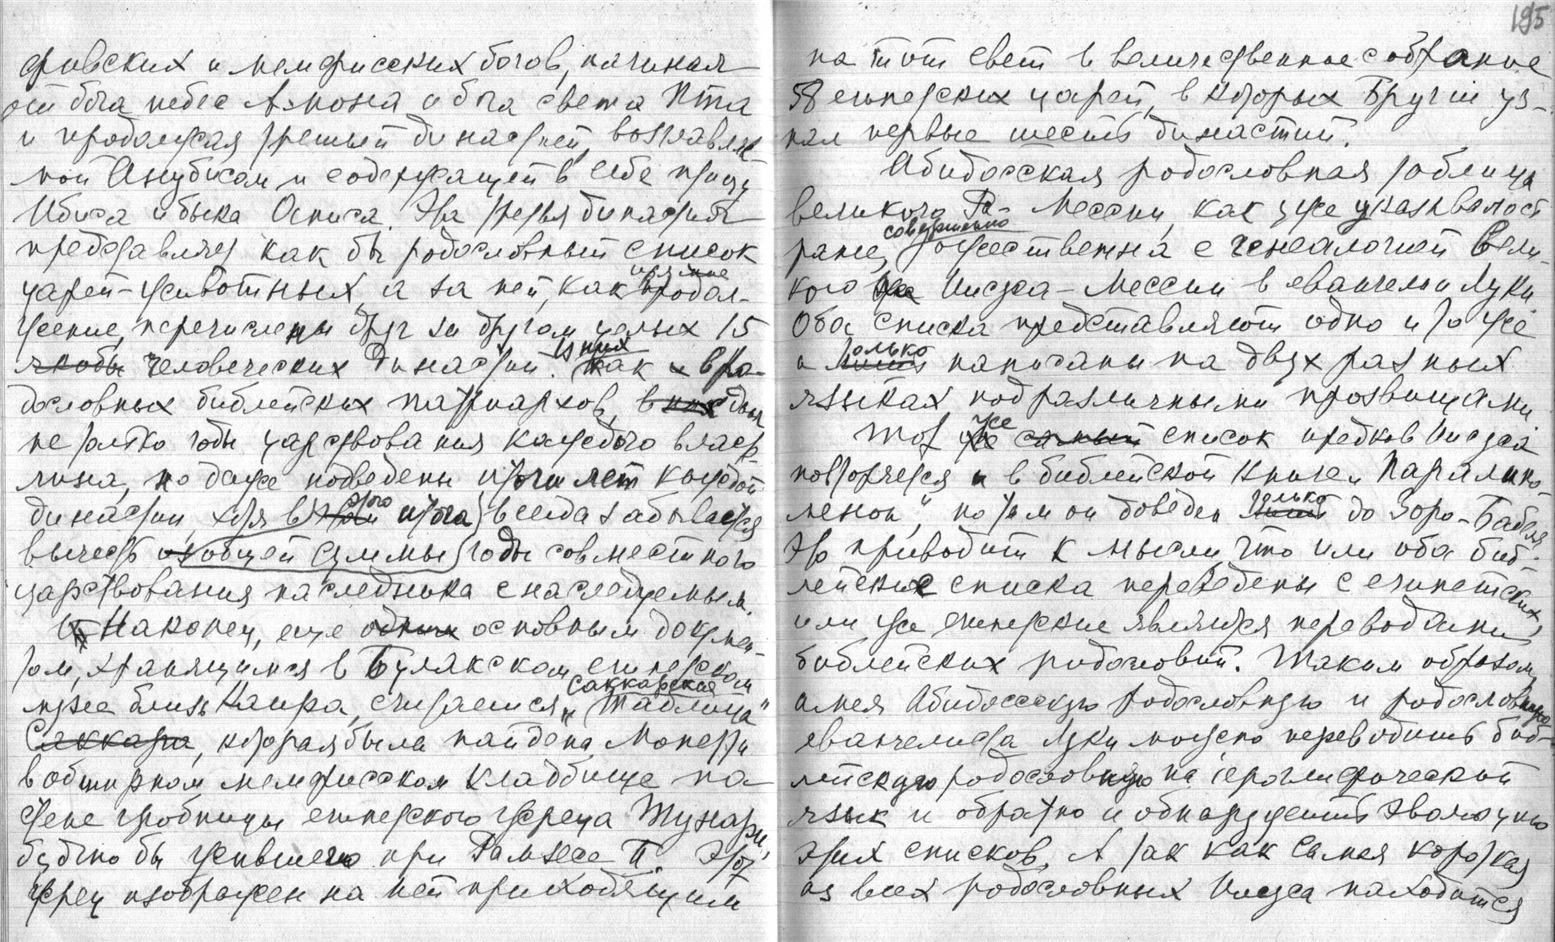 фивских и мемфисских богов, начиная
от бога небес Аммона и бога света Пта
и продолжая третьей династией, возглавляе-
мой Анубисом и содержащей в себе птицу
Ибиса и быка Осписа. Эта третья династия
представляет как бы родословный список
царей-животных, а за ней, как прямое продол-
жение, перечислены друг за другом целых 15
якобы человеческих династий. Как и в ро-
дословных библейских патриархов, в них даны
не только годы царствования каждого власте-
лина, но даже подведены итоги лет каждой
династии, хотя в этого итога всегда забывается
вычесть из общей суммы годы совместного
царствования наследника с наследуемым.
Наконец, еще одним основным докумен-
том, хранящимся в Булакском египетском
музее близь Каира, считается „Саккарская Таблица"
Саккара, которая была найдена Мопетти
в обширном мемфисском кладбище на
стене гробницы египетского жреца Тунари,
будто бы жившего при Рамзесе II. Этот
жрец изображен на ней приходящим
195
на тот свет в величественное собрание
58 египетских царей, в которых Бругш уз-
нал первые шесть династий.
Абидосская родословная таблица
великого Ра-Мессии, как уже указывалось
ранее, совершенно тожественна с генеалогией Вели-
кого Иисуса-Мессии в евангелии Луки
Оба списка представляют одно и то же
и только написаны на двух разных
языках под различными прозвищами.
Тот же самый список предков Иисуса
повторяется и в библейской книге „Паралипо-
менон", но там он доведен только до Зоро-Бабеля.
Это приводит к мысли что или оба биб-
лейские списка переведены с египетских,
или же египетские являются переводами
библейских родословий. Таким образом,
имея Абидосскую родословную и родословную
евангелиста Луки можно переводить биб-
лейскую родословную на иероглифический
язык и обратно и обнаружить эволюцию
этих списков. А так как самая короткая
из всех родословных Иисуса находится